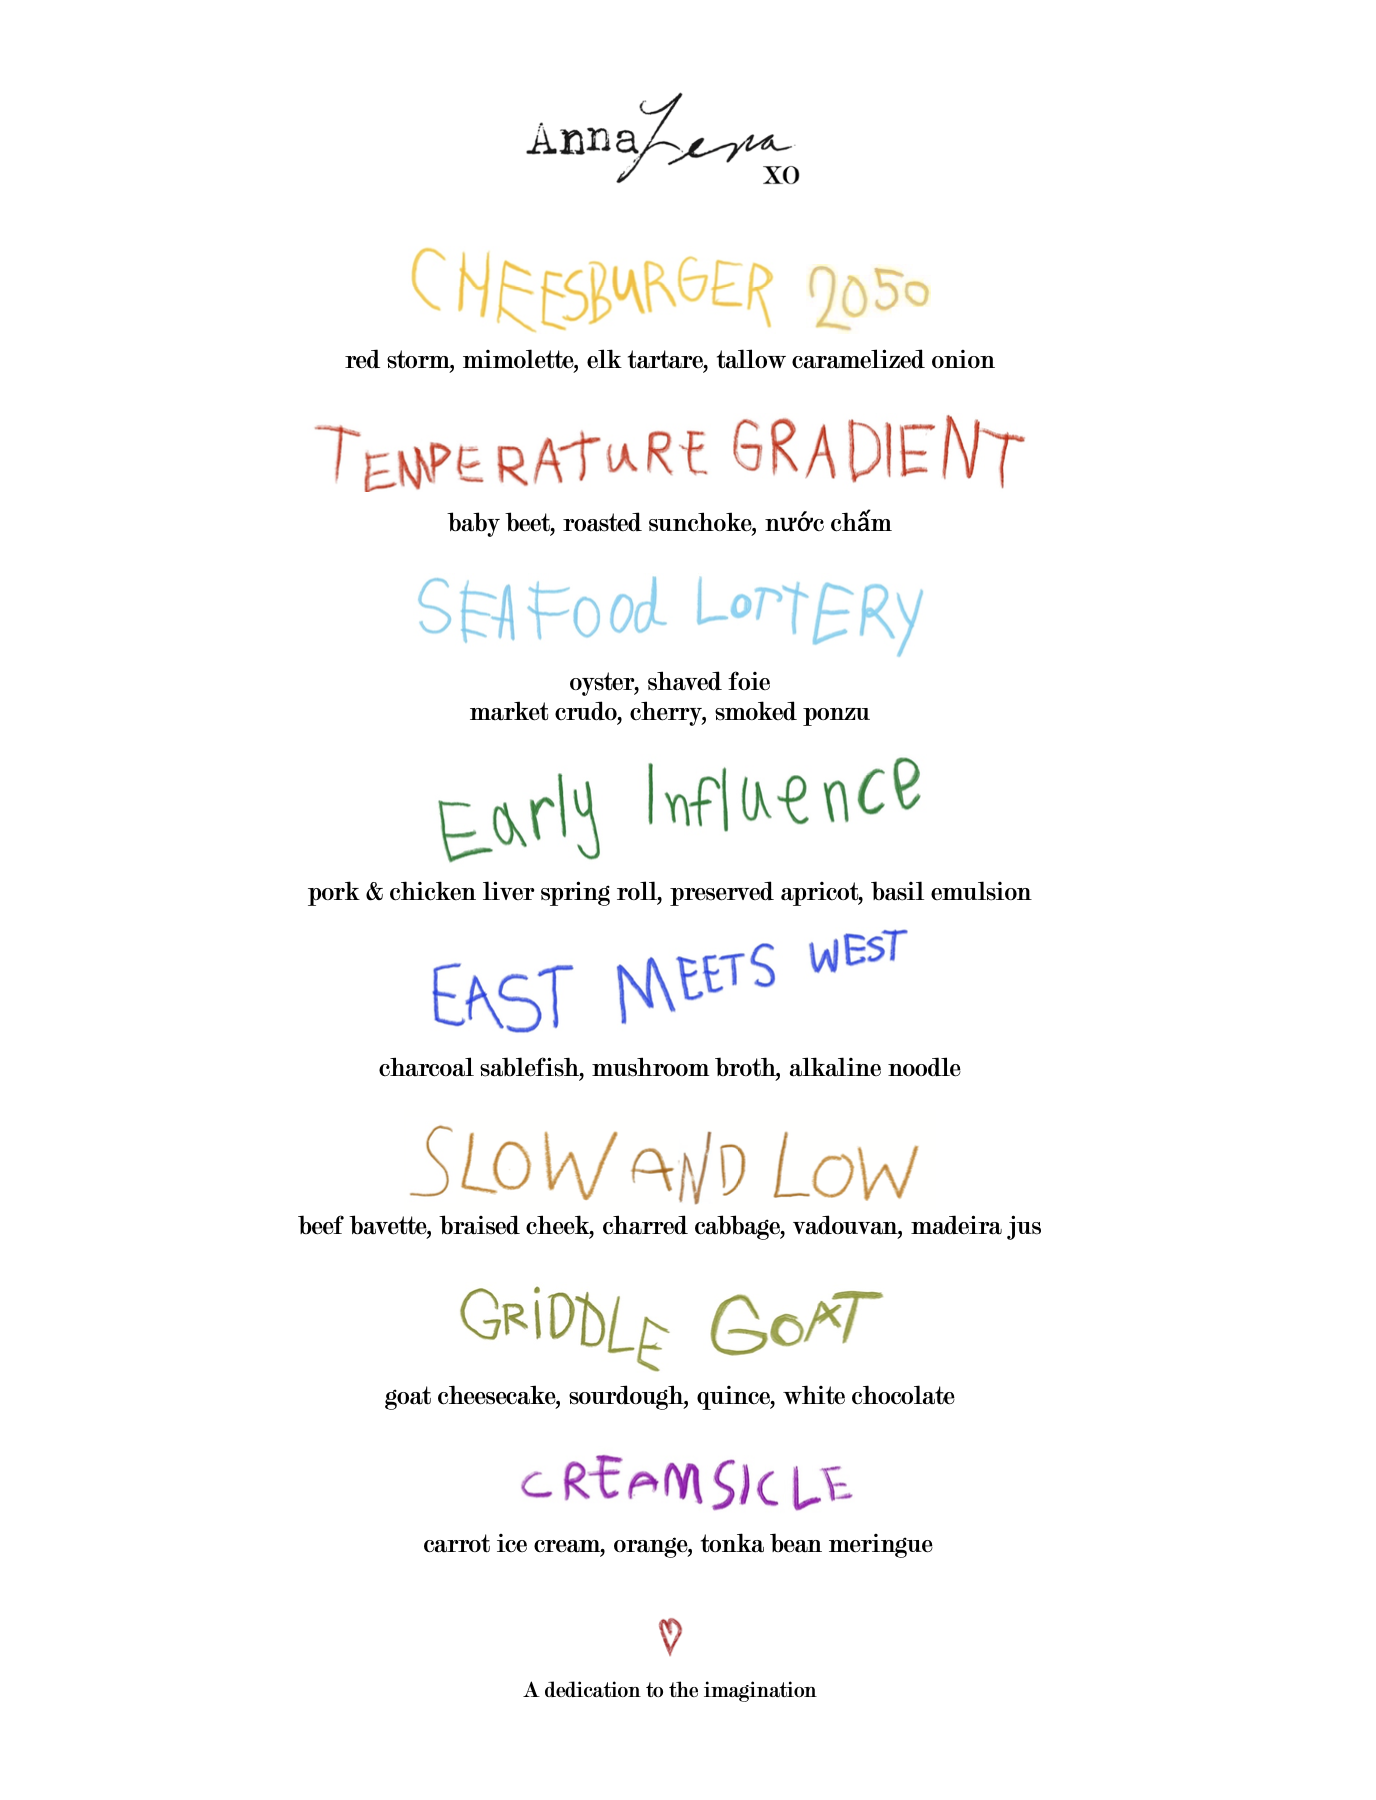 AnnaLena
XO
CHEESBURGER 2050
red storm, mimolette, elk tartare, tallow caramelized onion
TEMPERATURE GRADIENT
baby beet, roasted sunchoke, nước chấm
SEAFOOd LOTTERY
oyster, shaved foie
market crudo, cherry, smoked ponzu
Early Influence
pork & chicken liver spring roll, preserved apricot, basil emulsion
EAST MEETS WEST
charcoal sablefish, mushroom broth, alkaline noodle
SLOW AND LOW
beef bavette, braised cheek, charred cabbage, vadouvan, madeira jus
GRiDDLE GOAT
goat cheesecake, sourdough, quince, white chocolate
CREAMSICLE
carrot ice cream, orange, tonka bean meringue
A dedication to the imagination